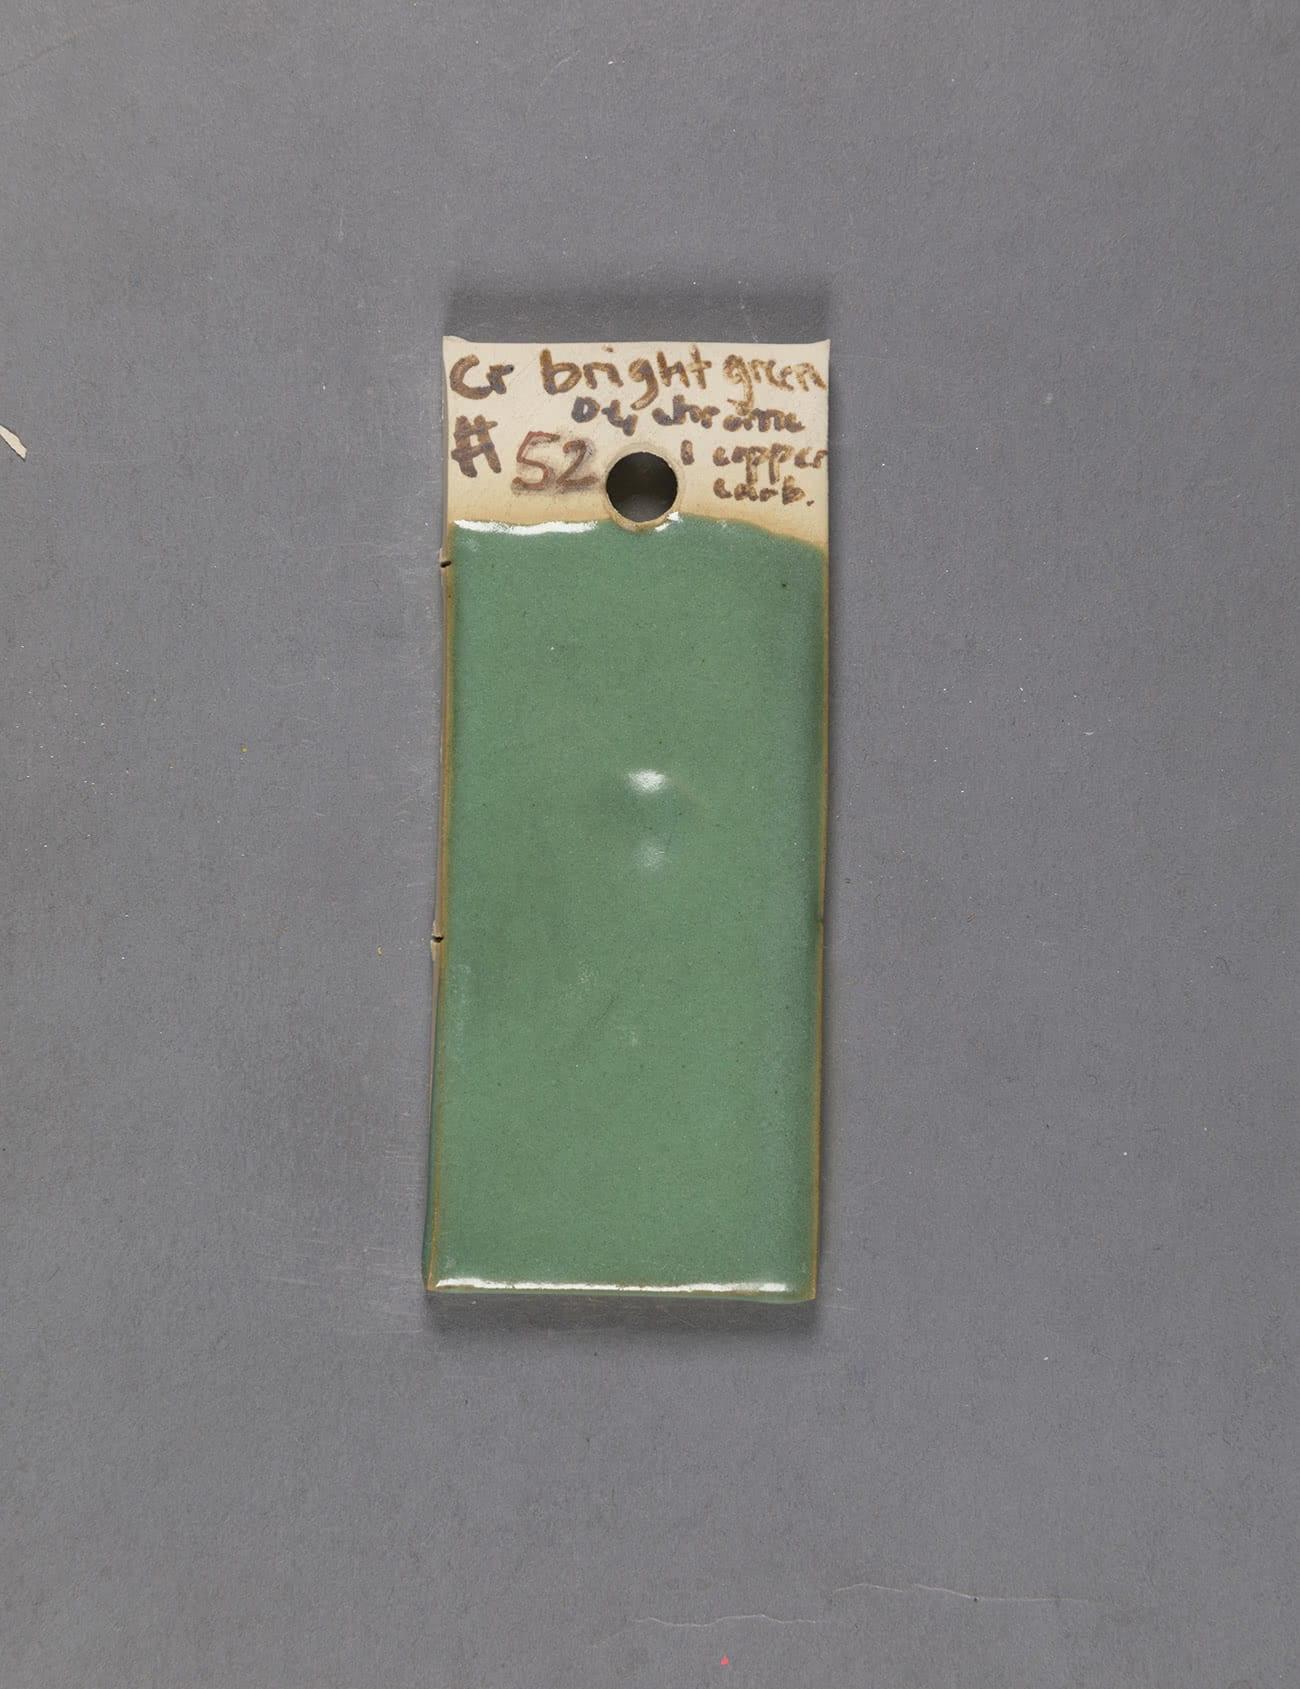 Cr bright green
chrome
# 52 1 copper
carb.